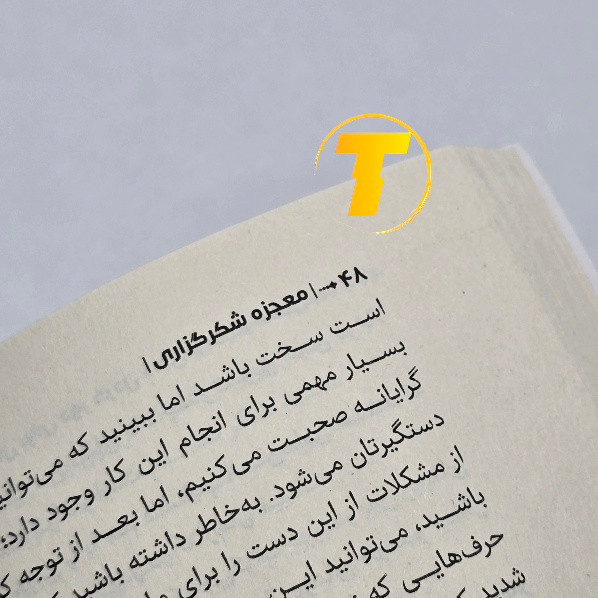 T
۴۸ | معجزه شکرگزاری |
است سخت باشد اما ببینید که
بسیار مهمی برای انجام این کار وجود دارد؛
گرایانه صحبت می‌کنیم، اما بعد از توجه
دستگیرتان می‌شود. به‌خاطر داشته باشید
از مشکلات از این دست را برای
باشید، می‌توانید این
حرف‌هایی که
شدید